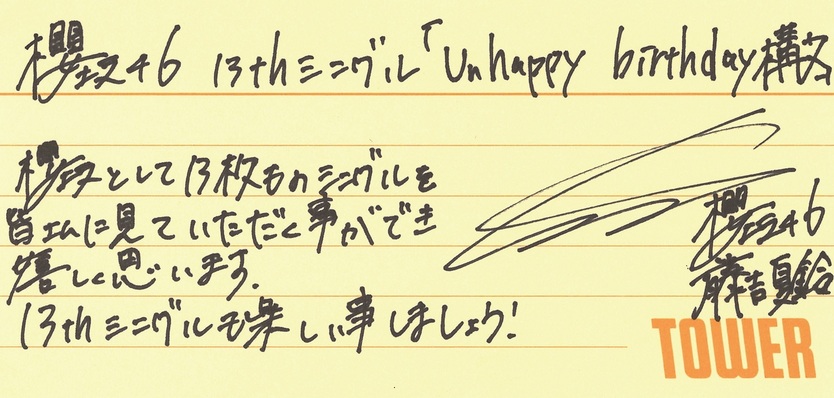 櫻坂46 13thシングル「Unhappy birthday構文
櫻坂として13枚ものシングルを
皆さんに見ていただく事ができ
嬉しく思います.
13thシングルも楽しい事しましょう!
櫻坂46
藤吉夏鈴
TOWER